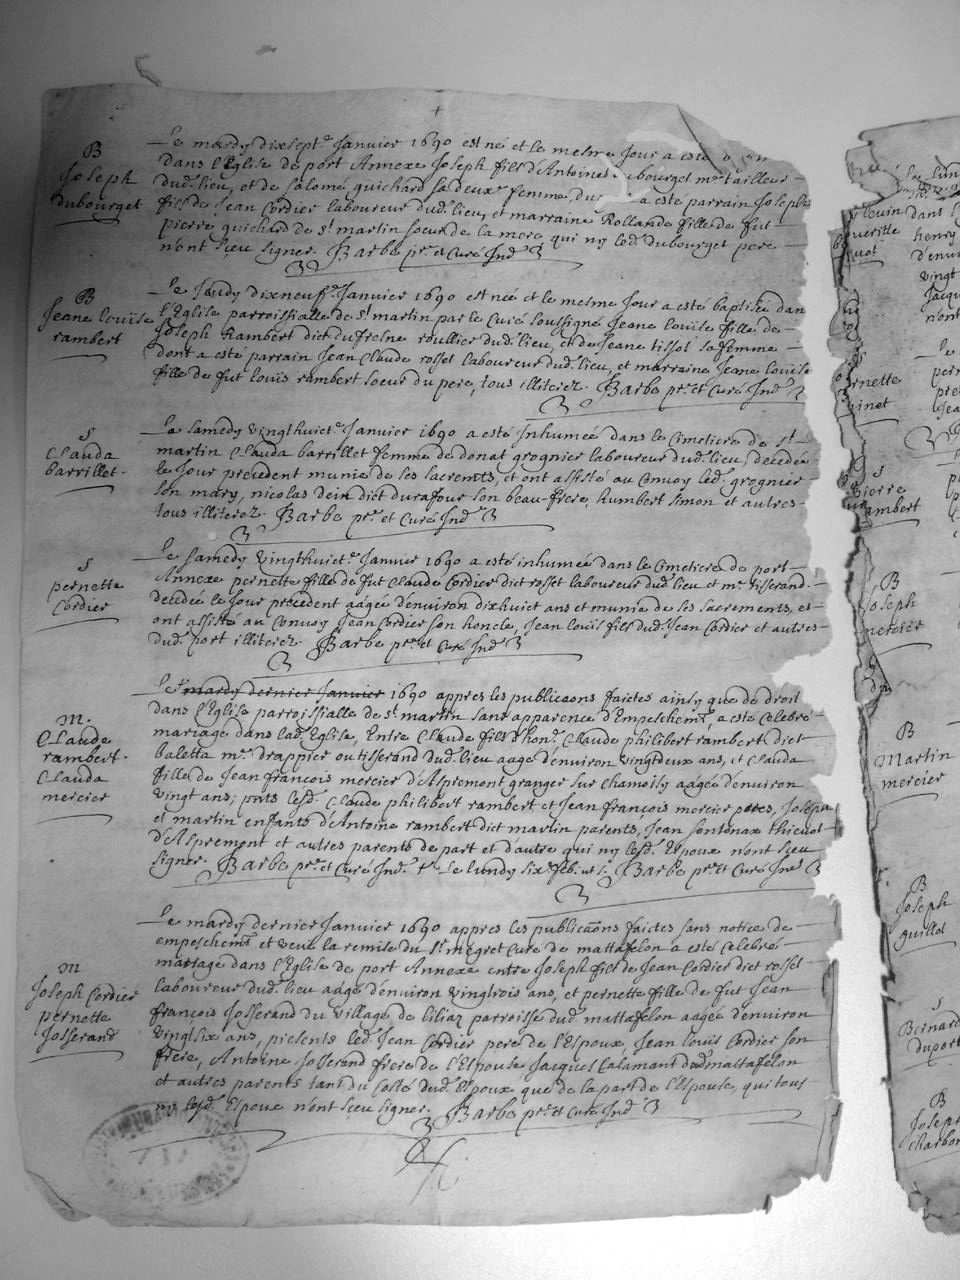 B
Joseph
dubourget
Le mardy dixsept.e Janvier 1690 est né et le mesme Jour a esté
dans l'Eglise de port Annexe Joseph fils d'Antoine dubourget m.e tailleur
dud. lieu, et de salomé guichard sa deux.e femme, a esté parrain Joseph
fils de Jean Cordier laboureur dud. lieu, et marraine Rollande fille de fut
pierre guichard de s.t martin soeur de la mere qui ny led. dubourget pere
n'ont sceu signer. Barbe p.re et Curé Ind.e
B
Jeane Louise
rambert
Le Jeudy dixneuf.e Janvier 1690 est née et le mesme Jour a esté baptisée dan
l'Eglise parroissialle de s.t martin par le Curé soussigné Jeane Louise fille de
Joseph Rambert dict dufresne roullier dud. lieu, et de Jeane tissot sa femme
dont a esté parrain Jean Claude rosset laboureur dud. lieu, et marraine Jeane Louise
fille de fut Louis rambert soeur du pere, tous illiterez. Barbe p.re et Curé Ind.e
S
Clauda
barrillet.
Le samedy vingthuict.e Janvier 1690 a esté Inhumée dans le Cimetiere de s.t
martin Clauda barrillet femme de donat grognier laboureur dud. lieu, decedée
le Jour precedent munie de ses sacrements, et ont assisté au Convoy led. grognier
son mary, nicolas dein dict durafour son beau-frere, humbert simon et autres
tous illiterez. Barbe p.re et Curé Ind.e
S
pernette
Cordier
Le samedy vingthuict.e Janvier 1690 a esté inhumée dans le Cimetiere de port
Annexe pernette fille de fut Claude Cordier dict rosset laboureur dud. lieu et m.e tisserand
decedée le Jour precedent aagée d'environ dixhuict ans et munie de ses sacrements, et
ont assisté au Convoy Jean Cordier son honcle, Jean Louis fils dud. Jean Cordier et autres
dud. port illiterez. Barbe p.re et Curé Ind.e
M.
Claude
rambert.
Clauda
mercier
Le mardy dernier Janvier 1690 appres les publicaons faictes ainsy que de droit
dans l'Eglise parroissialle de s.t martin sans apparence d'Empeschem.t, a esté Celebré
mariage dans lad. Eglise, Entre Claude fils d'hon. Claude philibert rambert dict
baletta m.e drappier ou tisserand dud. lieu aagé d'environ vingtdeux ans, et Clauda
fille de Jean françois mercier d'Aspremont granger sur Chamoisy aagée d'environ
vingt ans; pnts lesd. Claude philibert rambert et Jean françois mercier peres, Joseph
et martin enfants d'Antoine rambert dict martin parents, Jean sontonax thievol
d'Aspremont et autres parents de part et d'autre qui ny lesd. Espoux n'ont sceu
signer. Barbe p.re et Curé Ind.e Le lundy six feb. Barbe p.re et Curé Ind.e
M
Joseph Cordier
pernette
Josserand
Le mardy dernier Janvier 1690 appres les publicaons faictes sans notice de
empeschem.t et veue la remise du S.r megret Curé de mattafelon a esté Celebré
mariage dans l'Eglise de port Annexe entre Joseph fils de Jean Cordier dict rosset
laboureur dud. lieu aagé d'environ vingtrois ans, et pernette fille de fut Jean
françois Josserand du village de Ciliaz parroisse dud. mattafelon aagée d'environ
vingtsix ans, presents led. Jean Cordier pere de l'Espoux, Jean Louis Cordier son
frere, Antoine Josserand frere de l'Espouse Jacques Calamant dud. mattafelon
et autres parents tant du Costé dud. Espoux que de la part de l'Espouse, qui tous
ny lesd. Espoux n'ont sceu signer. Barbe p.re et Curé Ind.e
henry
vingt
Jacqu
n'ont
S
pierre
rambert
B
Joseph
mercier
B
Martin
mercier
B
Joseph
guillot
S
Bernard
duport
B
Joseph
charbon